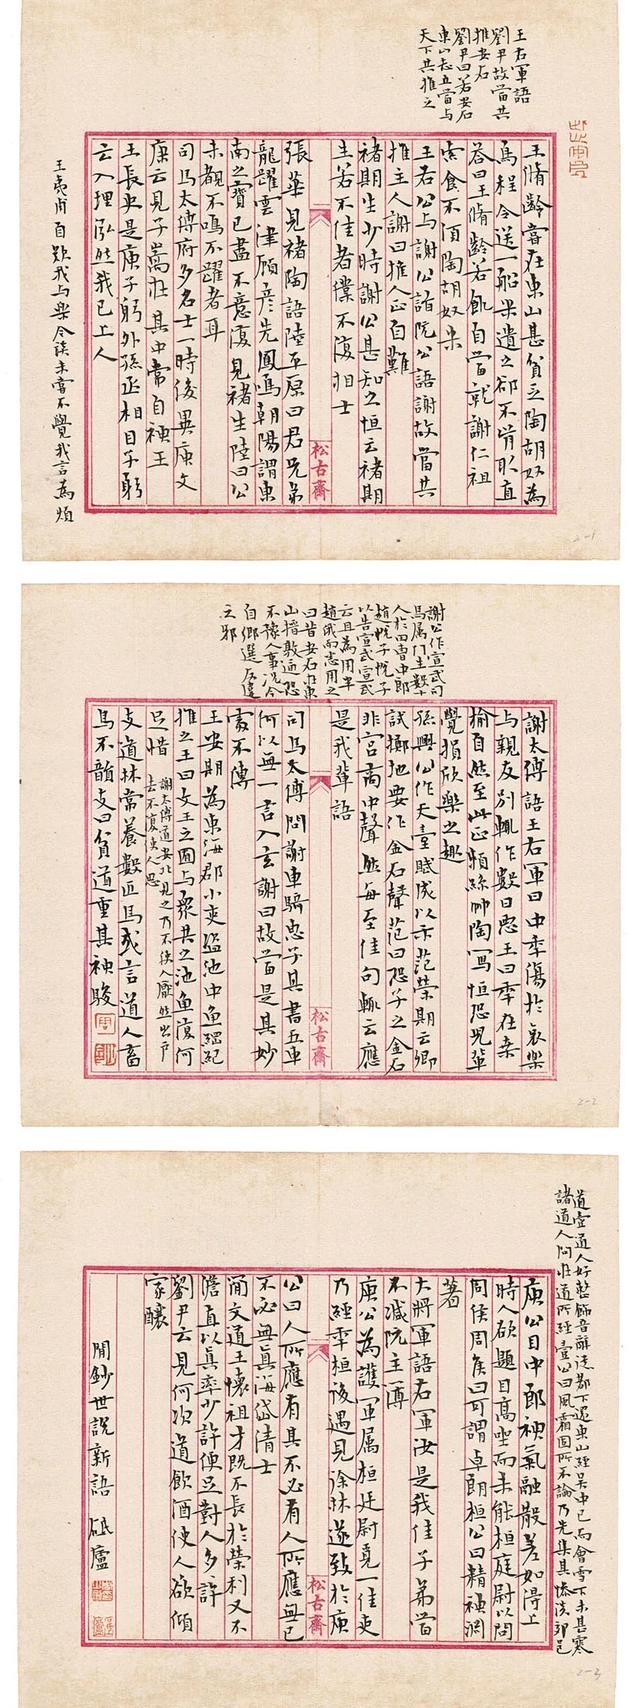 王右軍語
劉尹故當共
推安石
劉尹曰若安石
東山志立當与
天下共推之
王脩齡嘗在東山甚貧乏陶胡奴為
烏程令送一船米遺之卻不肯取直
荅曰王脩齡若飢自當就謝仁祖
索食不須陶胡奴米
王右公与謝公詣阮公語謝故當共
推主人謝曰推人正自難
褚期生少時謝公甚知之恒云褚期
生若不佳者僕不復相士
松古齋
張華見褚陶語陸平原曰君兄弟
龍躍雲津顧彥先鳳鳴朝陽謂東
南之寶已盡不意復見褚生陸曰公
未覩不鳴不躍者耳
司馬太傅府多名士一時儁異庾文
康云見子嵩在其中常自神王
王長史是庾子躬外孫丞相目子躬
云入理泓然我已上人
王夷甫自歎我与樂令談未嘗不覺我言為煩
2-1
謝公作宣武司
馬属門生數十
人於田曹中郎
趙悅子悅子
以告宣武宣武
云且為用半
趙俄而悉用之
曰昔安石在東
山搢敦逼恐
不豫人事況今
自鄉選反違
之邪
謝太傅語王右軍曰中年傷於哀樂
与親友別輒作數日惡王曰年在桑
榆自然至此正賴絲竹陶寫恒恐兒輩
覺損欣樂之趣
孫興公作天臺賦成以示范榮期云卿
試擲地要作金石聲范曰恐子之金石
非宮商中聲然每至佳句輒云應
是我輩語
松古齋
司馬太傅問謝車騎惠子其書五車
何以無一言入玄謝曰故當是其妙
處不傳
王安期為東海郡小吏盜池中魚綱紀
推之王曰文王之囿与衆共之池魚復何
足惜
謝太傅道安北見之乃不使人厭然出戶
去不復使人思
支道林常養數匹馬或言道人畜
馬不韻支曰貧道重其神駿
2-2
道壹道人好整飾音辭從都下還東山經吳中已而會雪下未甚寒
諸道人問在道所經壹公曰風霜固所不論乃先集其慘淡郊邑
庾公目中郎神氣融散差如得上
時人欲題目高坐而未能桓廷尉以問
周侯周侯曰可謂卓朗桓公曰精神淵
著
大將軍語右軍汝是我佳子弟當
不減阮主簿
庾公為護軍属桓廷尉覓一佳吏
乃經年桓後遇見徐寧遂致於庾
松古齋
公曰人所應有其不必有人所應無己
不必無真海岱清士
簡文道王懷祖才既不長於榮利又不
澹直以真率少許便足對人多許
劉尹云見何次道飲酒使人欲傾
家釀
閒鈔世說新語 砥廬
2-3